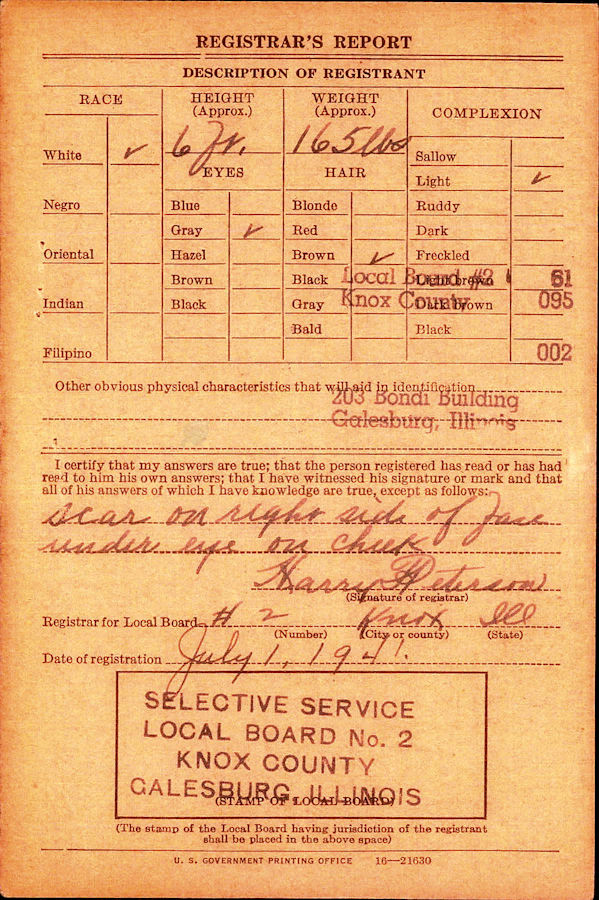 REGISTRAR'S REPORT
DESCRIPTION OF REGISTRANT
RACE
HEIGHT
(Approx.)
WEIGHT
(Approx.)
COMPLEXION
6 ft.
165 lbs
White ✓
EYES
HAIR
Sallow
Light ✓
Negro
Blue
Blonde
Ruddy
Gray ✓
Red
Dark
Oriental
Hazel
Brown ✓
Freckled
Brown
Black
Light brown
Local Board #2 61
Indian
Black
Gray
Dark brown
Knox County 095
Bald
Black
Filipino
002
Other obvious physical characteristics that will aid in identification
203 Bondi Building
Galesburg, Illinois
I certify that my answers are true; that the person registered has read or has had
read to him his own answers; that I have witnessed his signature or mark and that
all of his answers of which I have knowledge are true, except as follows:
scar on right side of face
under eye on cheek
Harry H Peterson
(Signature of registrar)
Registrar for Local Board # 2 Knox Ill
(Number) (City or county) (State)
Date of registration July 1, 1941.
SELECTIVE SERVICE
LOCAL BOARD No. 2
KNOX COUNTY
GALESBURG, ILLINOIS
(STAMP OF LOCAL BOARD)
(The stamp of the Local Board having jurisdiction of the registrant
shall be placed in the above space)
U. S. GOVERNMENT PRINTING OFFICE 16—21630